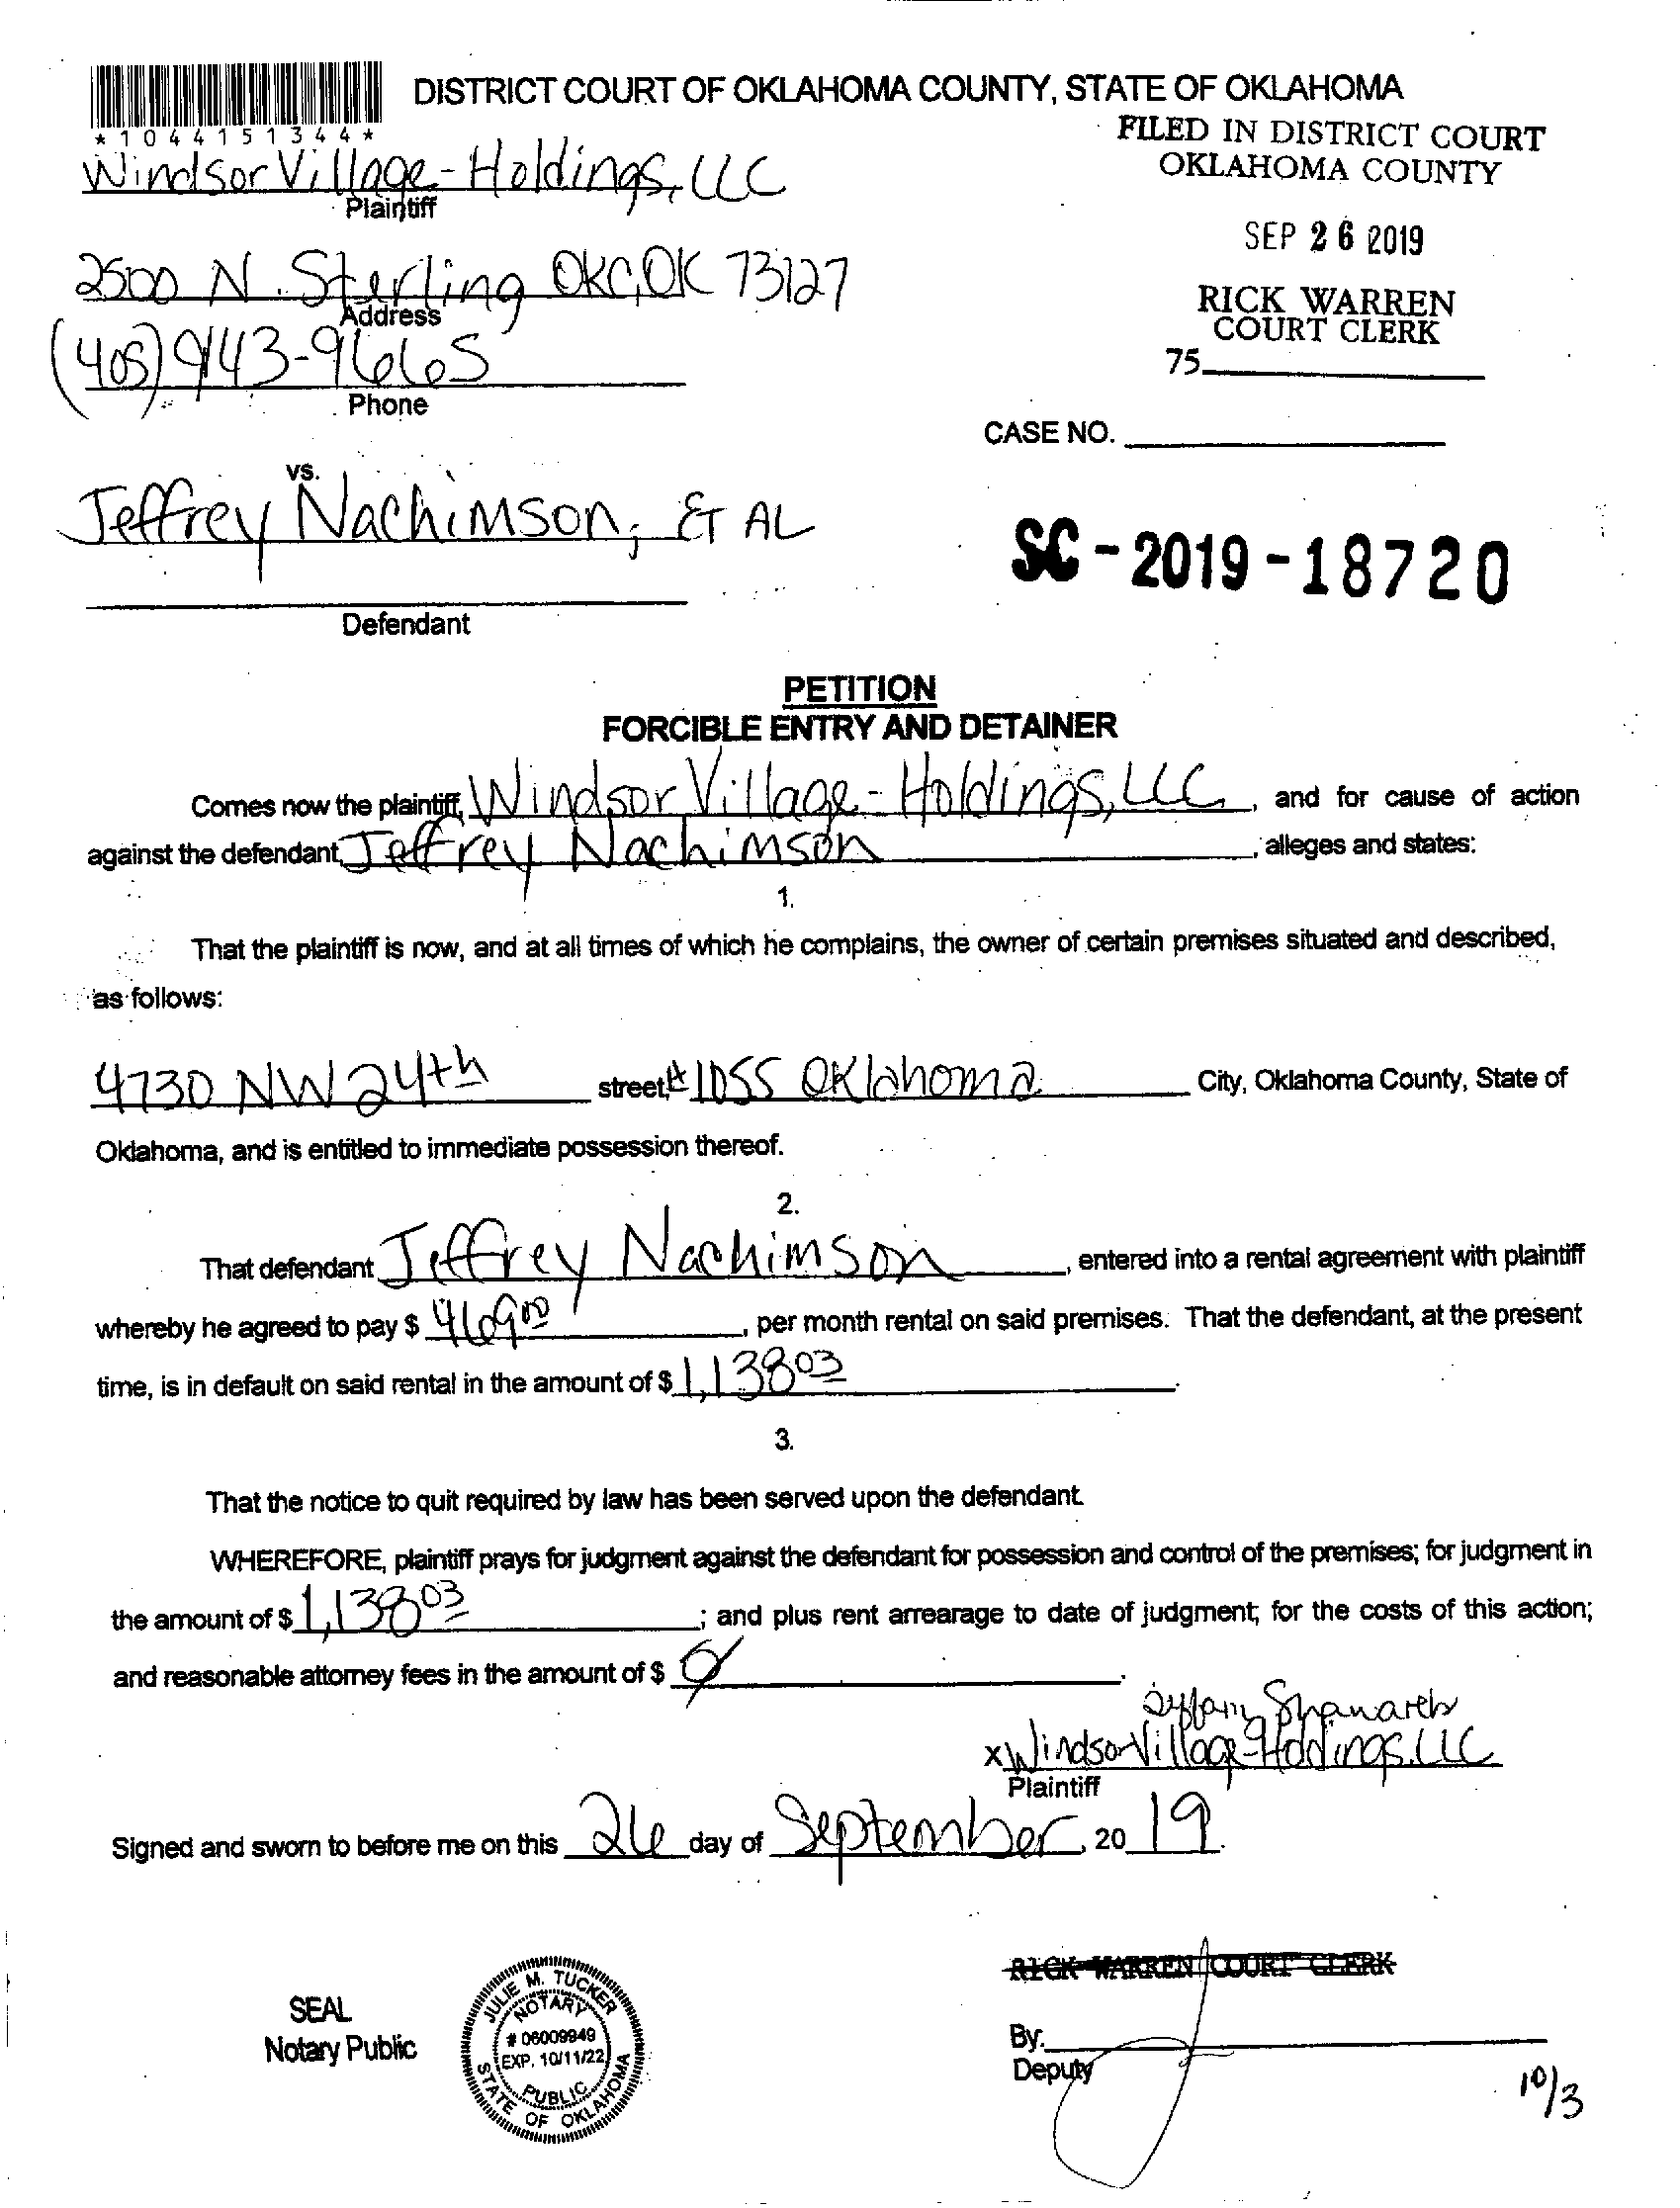 DISTRICT COURT OF OKLAHOMA COUNTY, STATE OF OKLAHOMA
*1044151344*
FILED IN DISTRICT COURT
OKLAHOMA COUNTY
Windsor Village-Holdings, LLC
Plaintiff
SEP 26 2019
2500 N. Sterling OKC, OK 73127
Address
RICK WARREN
COURT CLERK
75
(405) 943-9665
Phone
CASE NO.
vs.
Jeffrey Nachimson, ET AL
SC-2019-18720
Defendant
PETITION
FORCIBLE ENTRY AND DETAINER
Comes now the plaintiff, Windsor Village-Holdings, LLC, and for cause of action
against the defendant, Jeffrey Nachimson, alleges and states:
1.
That the plaintiff is now, and at all times of which he complains, the owner of certain premises situated and described,
as follows:
4730 NW 24th street, #1055 Oklahoma City, Oklahoma County, State of
Oklahoma, and is entitled to immediate possession thereof.
2.
That defendant Jeffrey Nachimson, entered into a rental agreement with plaintiff
whereby he agreed to pay $ 469 00, per month rental on said premises. That the defendant, at the present
time, is in default on said rental in the amount of $ 1,138 03.
3.
That the notice to quit required by law has been served upon the defendant.
WHEREFORE, plaintiff prays for judgment against the defendant for possession and control of the premises; for judgment in
the amount of $ 1,138 03; and plus rent arrearage to date of judgment; for the costs of this action;
and reasonable attorney fees in the amount of $ 0.
x Windsor Village-Holdings, LLC
Plaintiff
Signed and sworn to before me on this 26 day of September, 20 19.
RICK WARREN COURT CLERK
SEAL
Notary Public
JULIE M. TUCKER
NOTARY
# 06009949
EXP. 10/11/22
PUBLIC
STATE OF OKLAHOMA
By.
Deputy
10/3